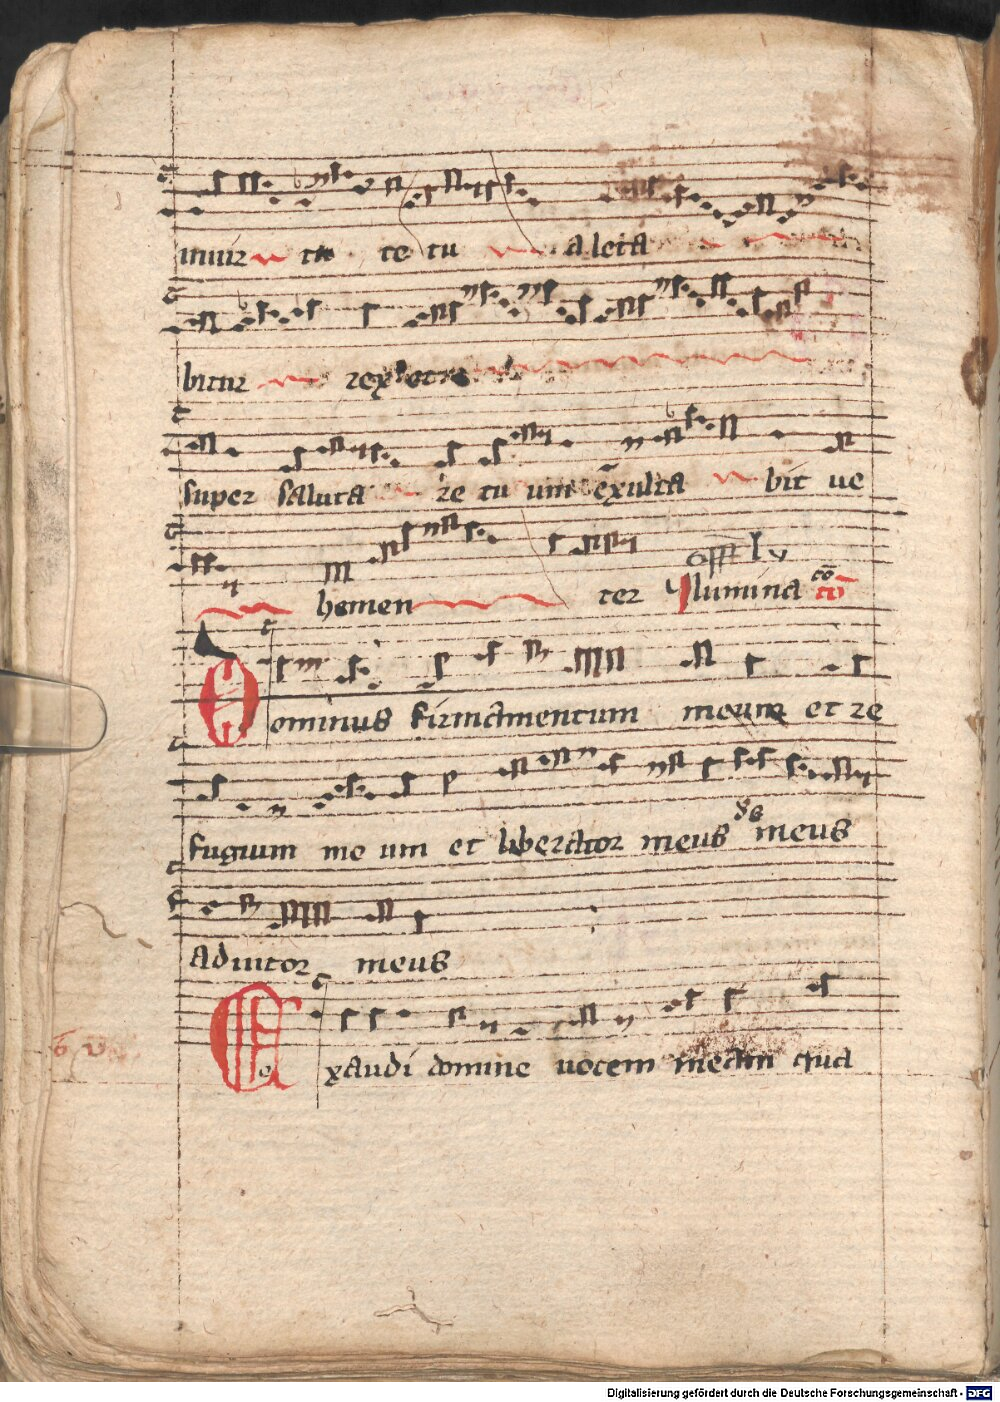 inuir tu te tu a leta
bitur rex et re
super saluta re tu um exulta bit ue
hemen ter offm Illumina co
Dominus firmamentum meum et re
fugium me um et liberator meus meus
Adiutor meus
Exaudi domine uocem meam qua
Digitalisierung gefördert durch die Deutsche Forschungsgemeinschaft - DFG